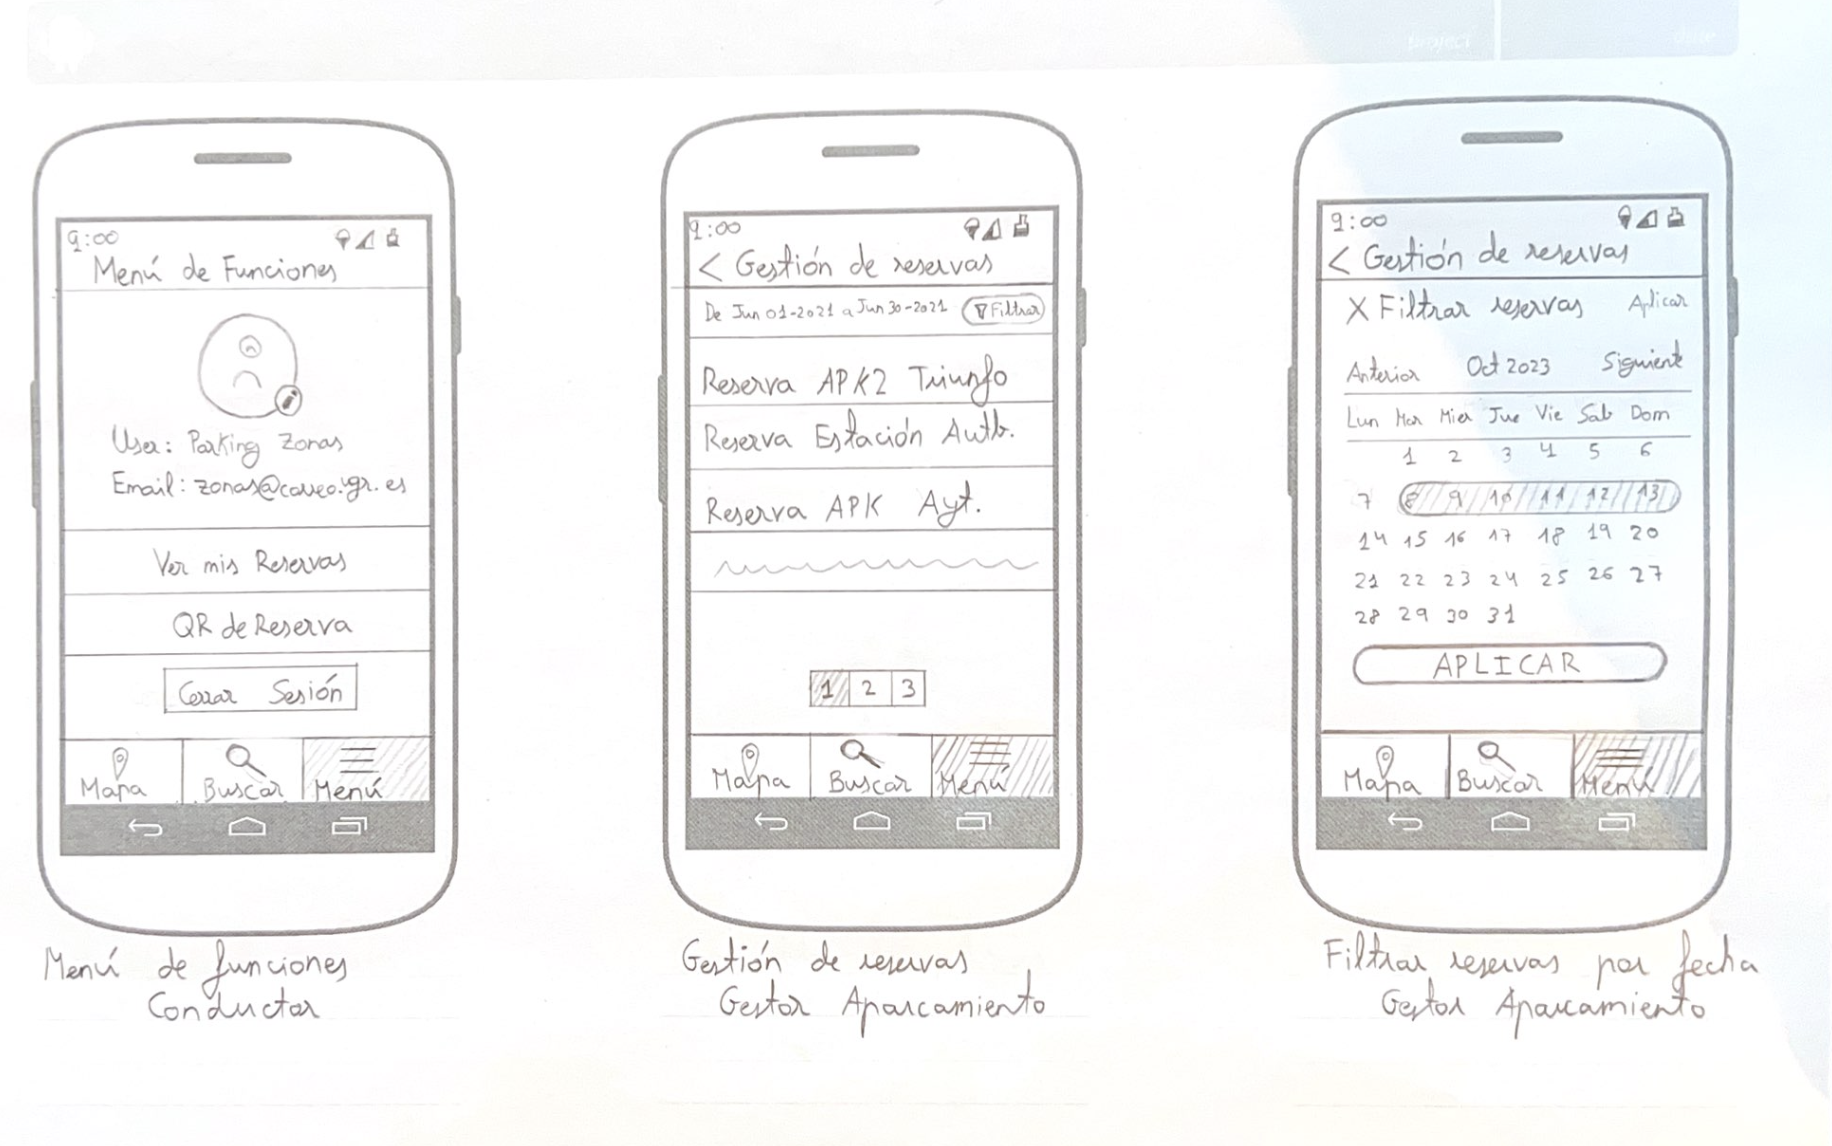 9:00
Menú de Funciones
User: Parking Zonas
Email: zonas@correo.ugr.es
Ver mis Reservas
QR de Reserva
Cerrar Sesión
Mapa Buscar Menú
Menú de funciones
Conductor
9:00
< Gestión de reservas
De Jun 01-2021 a Jun 30-2021 Filtrar
Reserva APK2 Triunfo
Reserva Estación Autb.
Reserva APK Ayt.
1 2 3
Mapa Buscar Menú
Gestión de reservas
Gestor Aparcamiento
9:00
< Gestión de reservas
X Filtrar reservas Aplicar
Anterior Oct 2023 Siguiente
Lun Mar Mier Jue Vie Sab Dom
1 2 3 4 5 6
7 8 9 10 11 12 13
14 15 16 17 18 19 20
21 22 23 24 25 26 27
28 29 30 31
APLICAR
Mapa Buscar Menú
Filtrar reservas por fecha
Gestor Aparcamiento